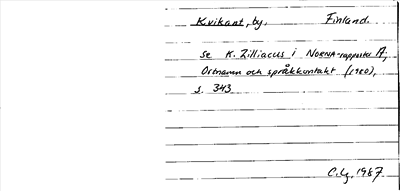 Kvikant, by. Finland.
se K. Zilliacus i NORNA-rapporter
Ortnamn och språkkontakt (1980),
s. 343
C.Lg. 1987